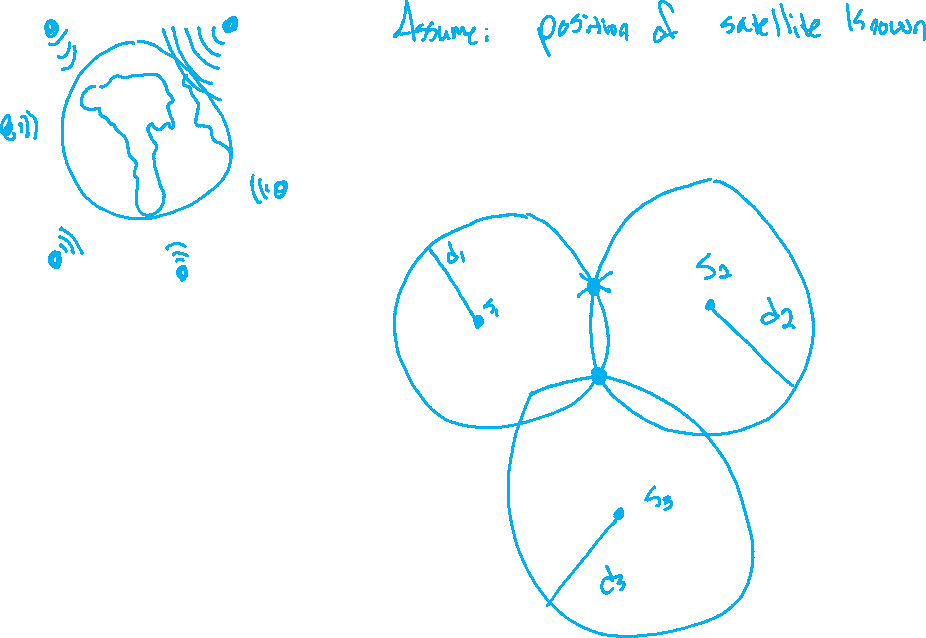 Assume: position of satellite known
d1
S1
S2
d2
S3
d3